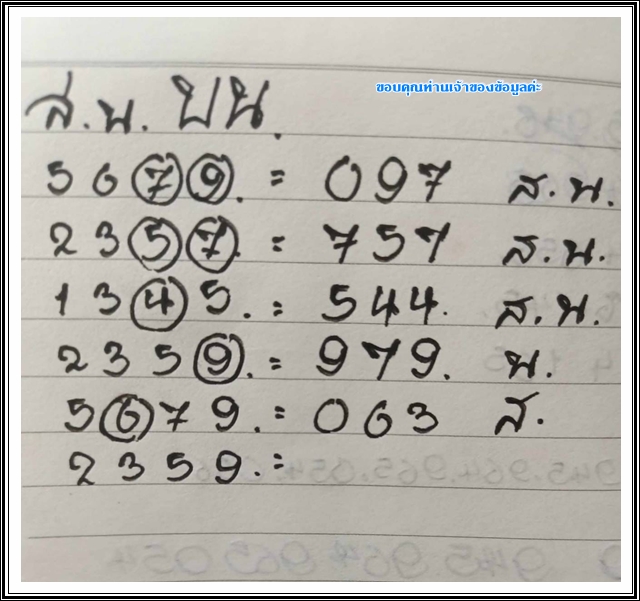 ขอบคุณท่านเจ้าของข้อมูลค่ะ
ส.น. บน.
5 6 7 9. = 0 9 7 ส.น.
2 3 5 7. = 7 5 7 ส.น.
1 3 4 5. = 5 4 4. ส.น.
2 3 5 9. = 9 7 9. น.
5 6 7 9. = 0 6 3 ส.
2 3 5 9. =